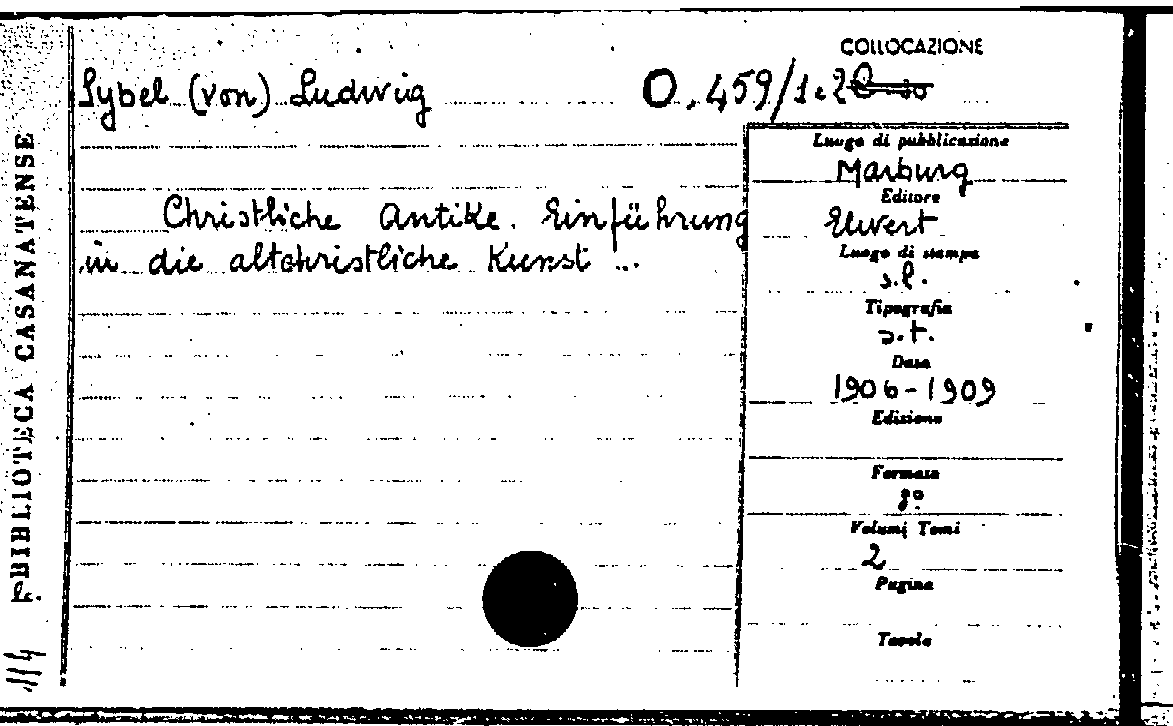 COLLOCAZIONE
Sybel (von) Ludwig
O. 459/1e2
Christliche Antike. Einführung
in die altchristliche Kunst ...
Luogo di pubblicazione
Marburg
Editore
Elwert
Luogo di stampa
s.l.
Tipografia
s.t.
Data
1906-1909
Edizione
Formato
8°
Volumi Tomi
2
Pagine
Tavole
BIBLIOTECA CASANATENSE
1/4